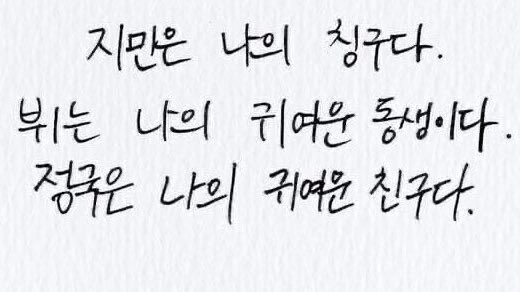 지만은 나의 칭구다.
뷔는 나의 귀여운 동생이다.
정국은 나의 귀여운 친구다.